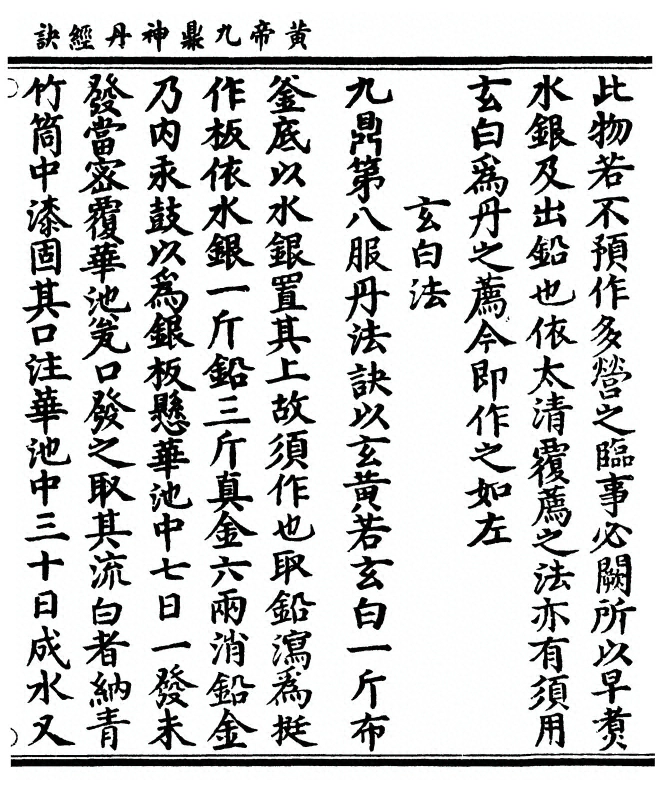 黃帝九鼎神丹經訣
此物若不預作多營之臨事必闕所以早煑
水銀及出鉛也依太清覆薦之法亦有須用
玄白爲丹之薦今即作之如左
玄白法
九鼎第八服丹法訣以玄黃若玄白一斤布
釜底以水銀置其上故須作也取鉛瀉爲挺
作板依水銀一斤鉛三斤真金六兩消鉛金
乃内汞鼓以爲銀板懸華池中七日一發未
發當密覆華池瓮口發之取其流白者納青
竹筒中漆固其口注華池中三十日成水又